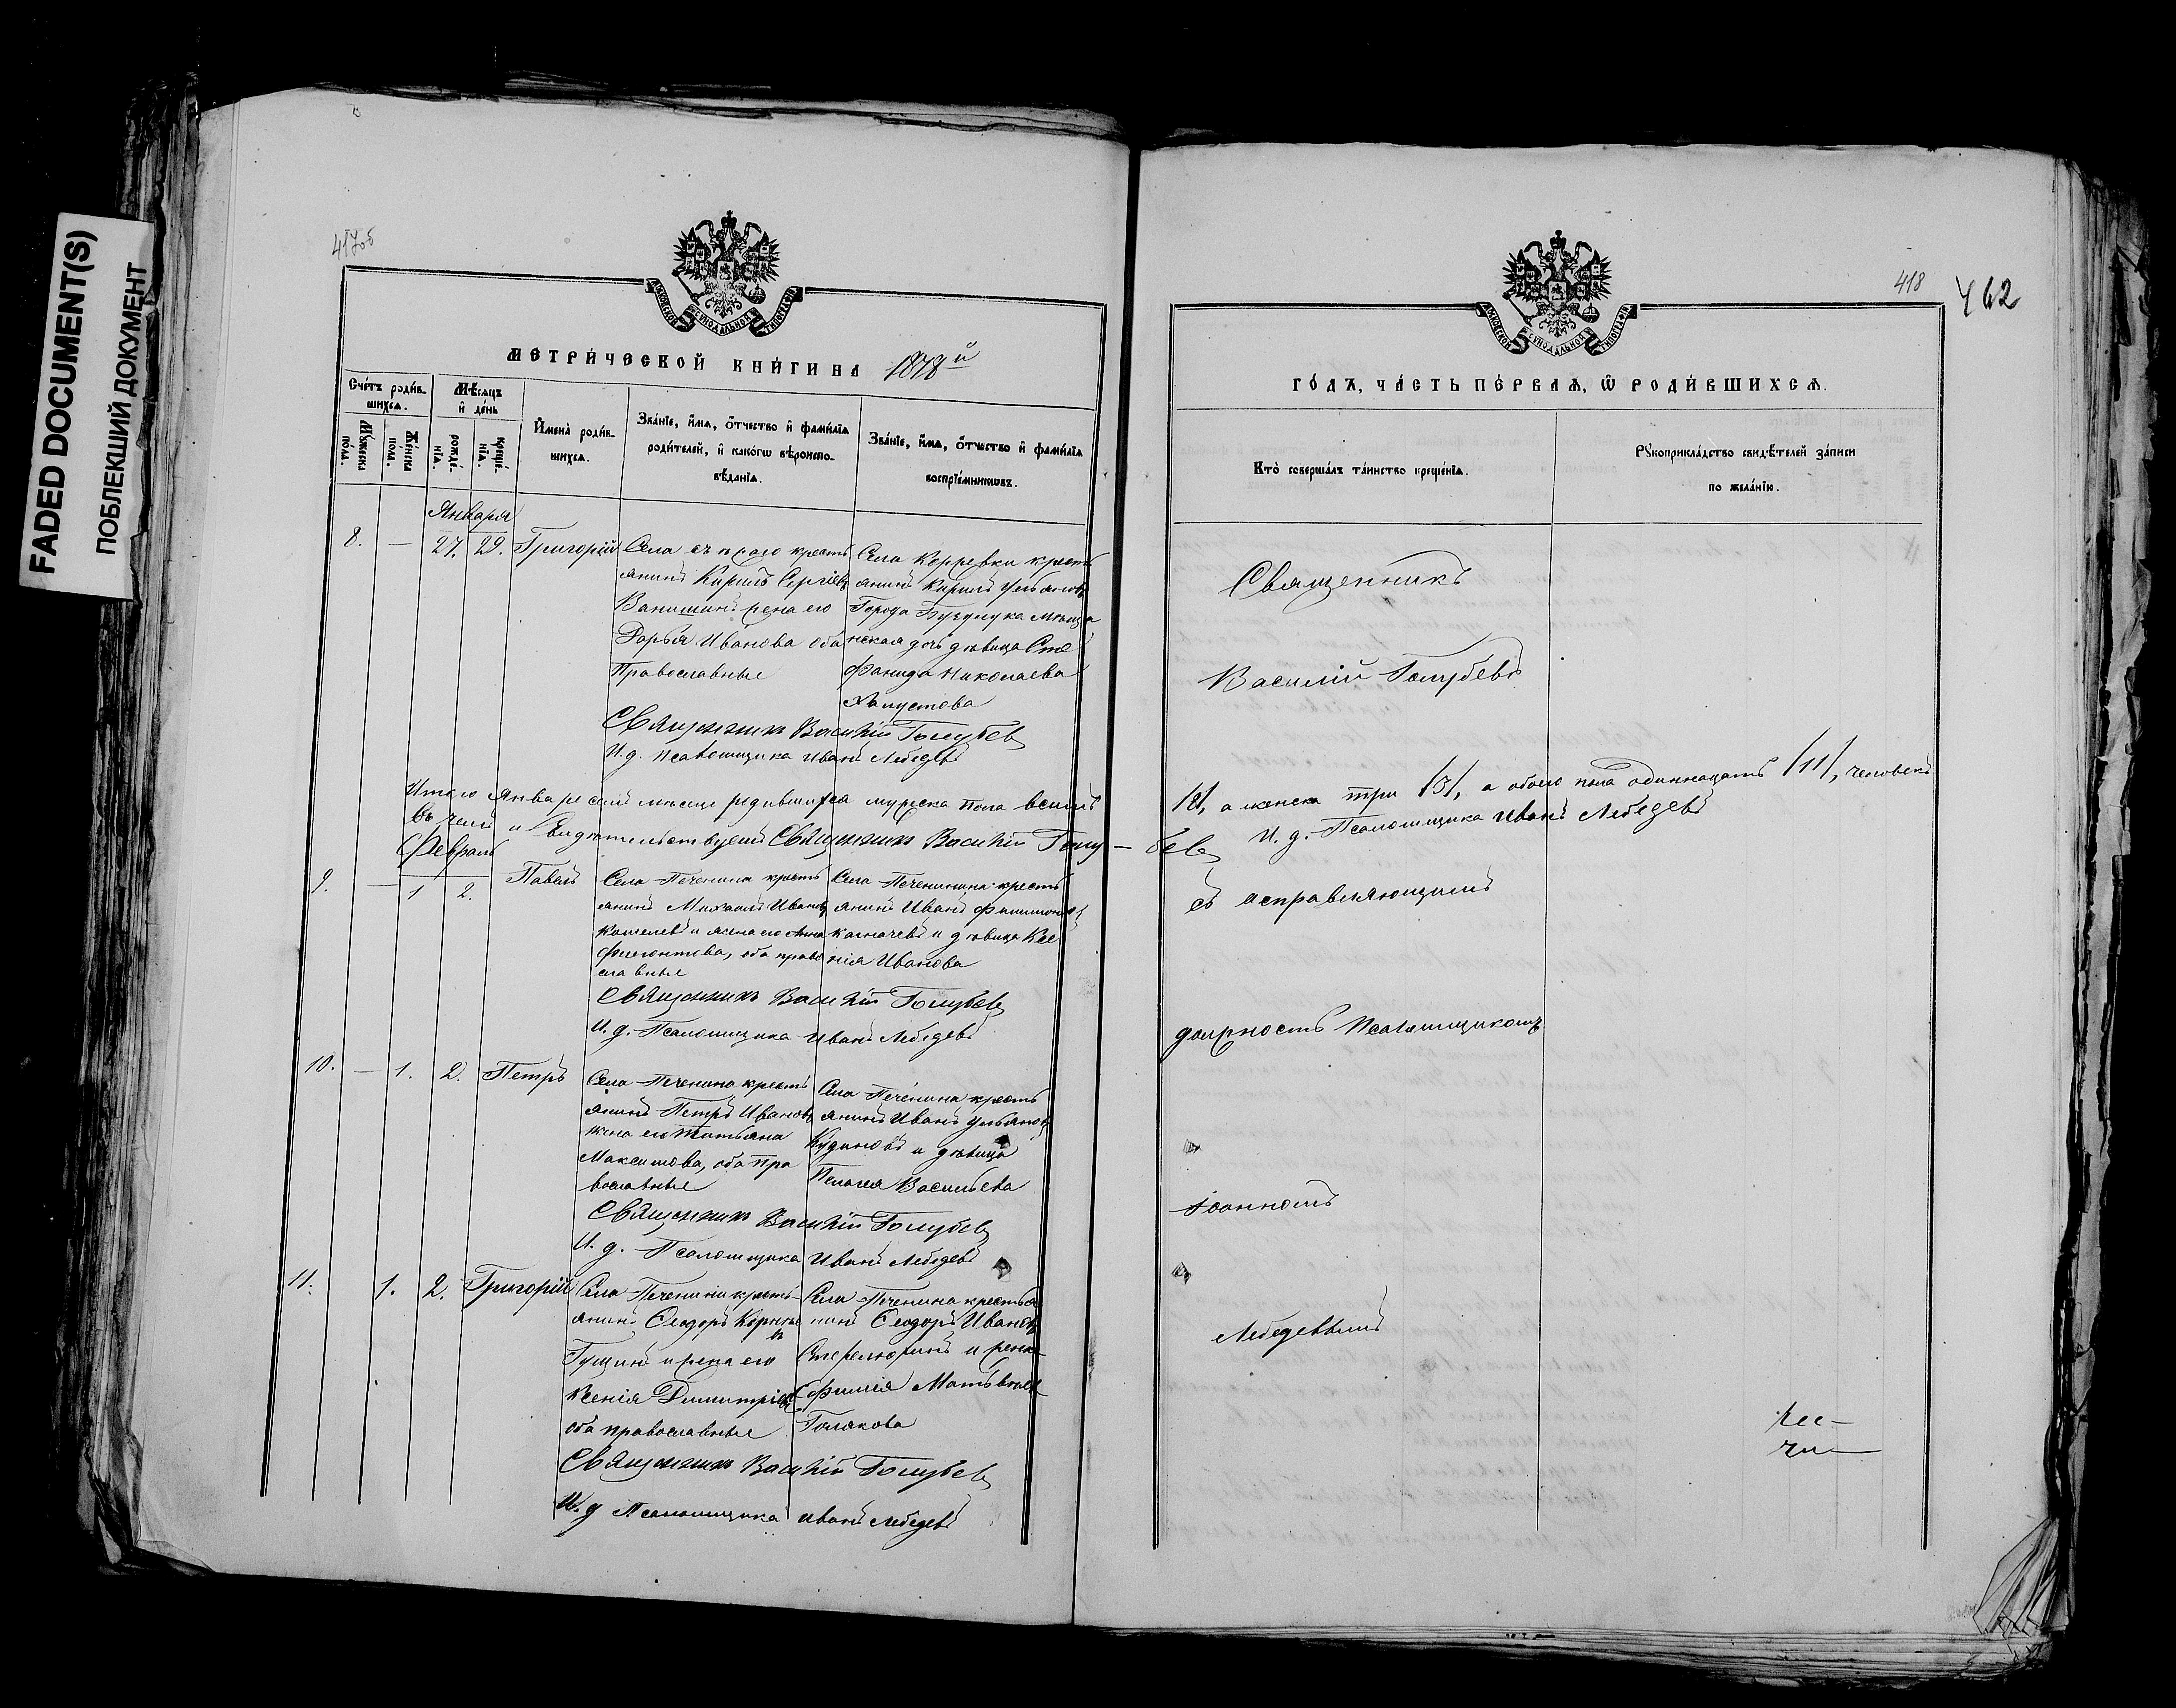 FADED DOCUMENT(S)
ПОБЛЕКШИЙ ДОКУМЕНТ
417об
МОСКОВСКОЙ СѴНОДАЛЬНОЙ ТИПОГРАФІИ
МЕТРИЧЕСКОЙ КНИГИ НА 1878й
Счетъ родив-
шихся.
Мужеска
пола.
Женска
пола.
Мѣсяцъ
и день
рожде-
нія.
креще-
нія.
Имена родив-
шихся.
Званіе, имя, отчество и фамилія
родителей, и какого вѣроиспо-
вѣданія.
Званіе, имя, отчество и фамилія
воспріемниковъ.
Января
8. — 27. 29. Григорій
Села
кресть
янинъ Кирилъ Сергіевъ
Ванишинъ жена его
Дарья Иванова оба
Православные
Села кресть
янинъ Кирилъ Ульяновъ
Города Бузулука мѣща
нская дочь дѣвица Сте
фанида Николаева
Священникъ Василій Голубевъ
И. д. псаломщика Иванъ Лебедевъ
Итого Январе семъ мѣсяце родившихся мужеска пола всемъ
въ чемъ и свидѣтельствуемъ Священникъ Василій Голу —
Февраль
9. — 1 2. Павелъ
Села Печенина кресть
янинъ Михаилъ Ивановъ
Кошелевъ и жена его Анна
оба право
славные
Села Печенина кресть
янинъ Иванъ Филимоновъ
и дѣвица Ксе
нія Иванова
Священникъ Василій Голубевъ
И. д. Псаломщика Иванъ Лебедевъ
10. — 1. 2. Петръ
Села Печенина кресть
янинъ Петръ Ивановъ
жена его Татьяна
Максимова, оба пра
вославные
Села Печенина кресть
янинъ Иванъ Ульяновъ
Кудиновъ и дѣвица
Пелагея Васильева
Священникъ Василій Голубевъ
И. д. Псаломщика Иванъ Лебедевъ
11. 1. 2. Григорій
Села Печенина кресть
янинъ Ѳеодоръ
Гущинъ и жена его
Ксенія Димитріева
оба православные
Села Печенина крестья
нинъ Ѳеодоръ Ивановъ
и жена
Матвѣева
Голякова
Священникъ Василій Голубевъ
И. д Псаломщика Иванъ Лебедевъ
418
462
МОСКОВСКОЙ СѴНОДАЛЬНОЙ ТИПОГРАФІИ
ГОДЪ, ЧАСТЬ ПЕРВАЯ, Ѿ РОДИВШИХСЯ.
Кто совершалъ таинство крещенія.
Рукоприкладство свидѣтелей записи
по желанію.
Священникъ
Василій Голубевъ
/8/, а женска три /3/, а обоего пола одиннадцать /11/, человекъ
бевъ И. д. Псаломщика Иванъ Лебедевъ
съ исправляющимъ
должность Псаломщикомъ
Іоанномъ
Лебедевымъ